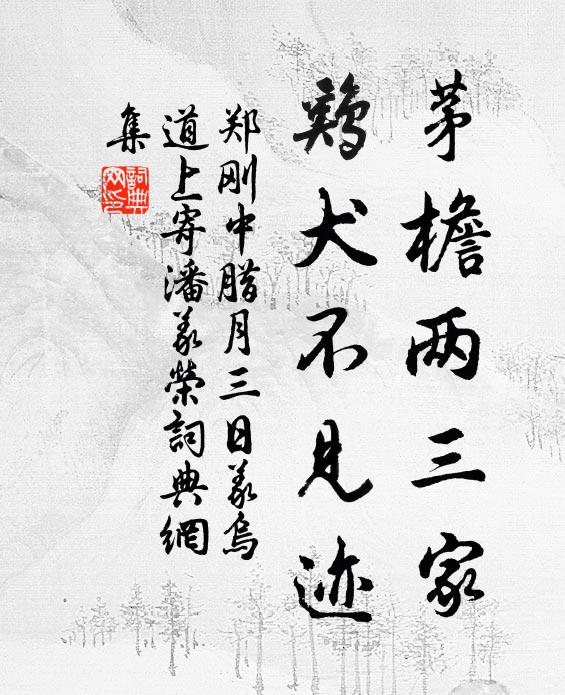 茅檐两三家
鸡犬不见迹
郑刚中腊月三日义乌
道上寄潘义荣詞典網
集
詞典
网印